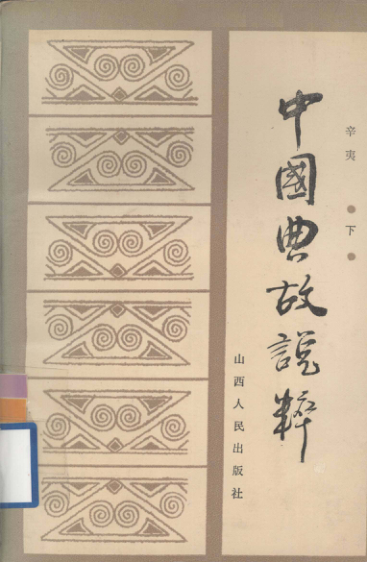 辛夷●下●
中國典故說粹
山西人民出版社